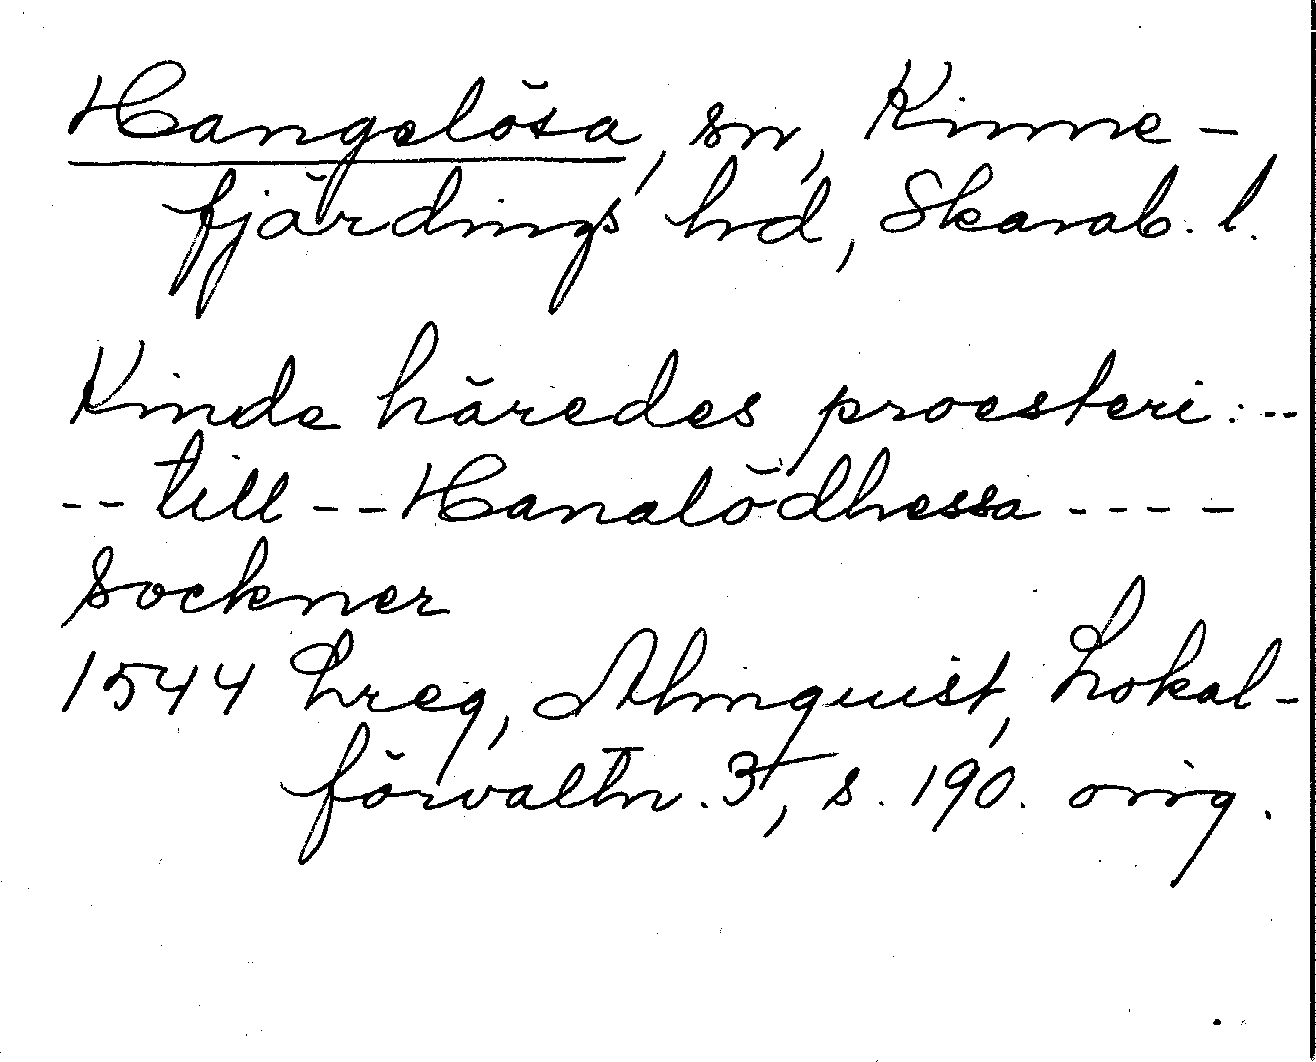 Hangelösa, sn, Kinne-
fjärdings hd, Skarab. l.
Kinde häredes proesteri: --
-- till -- Hanalödhessa ----
sockner
1544 Lreg, Almquist, Lokal-
förvaltn. 3, s. 190. orig.